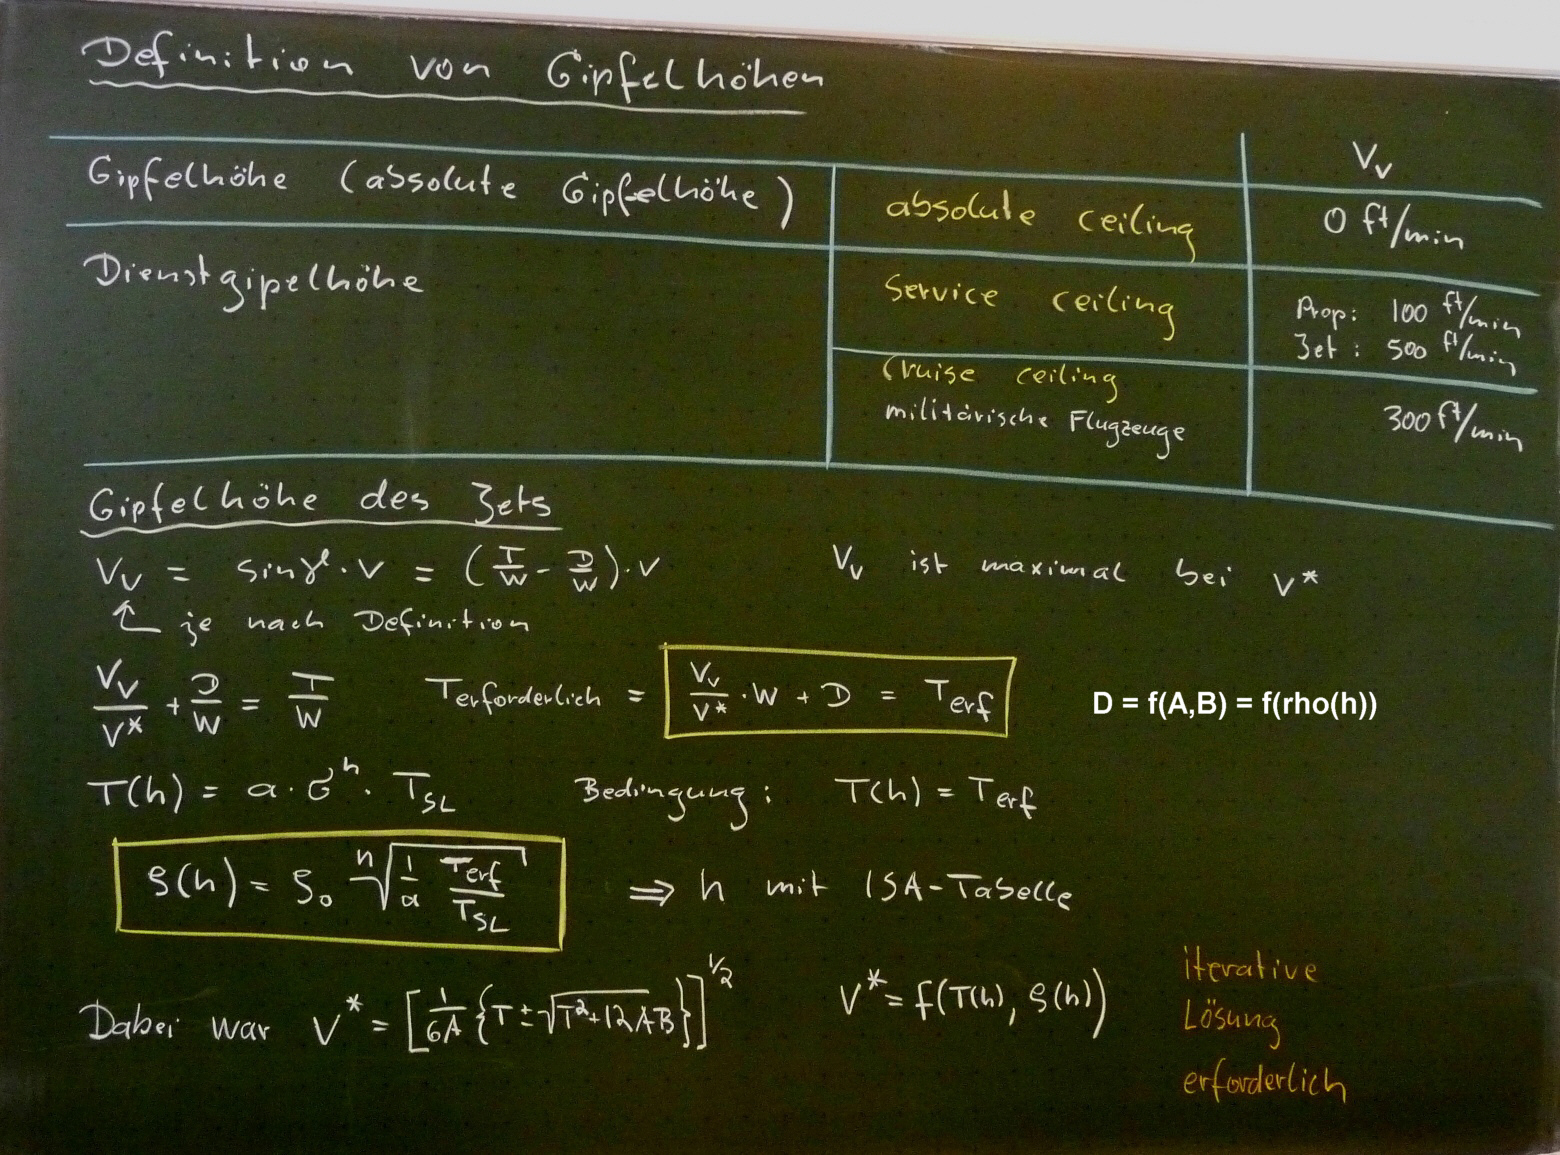 Definition von Gipfelhöhen
V_v
Gipfelhöhe (absolute Gipfelhöhe) absolute ceiling 0 ft/min
Dienstgipelhöhe service ceiling Prop: 100 ft/min
Jet: 500 ft/min
cruise ceiling
militärische Flugzeuge 300 ft/min
Gipfelhöhe des Jets
V_v = sin γ · V = (T/W - D/W) · V V_v ist maximal bei V*
↑ je nach Definition
V_v/V* + D/W = T/W T_erforderlich = V_v/V* · W + D = T_erf D = f(A,B) = f(rho(h))
T(h) = a · σ^n · T_SL Bedingung: T(h) = T_erf
ρ(h) = ρ_0 ⁿ√(1/a T_erf/T_SL) ⇒ h mit ISA-Tabelle
Dabei war V* = [1/6A {T ± √(T² + 12AB)}]^1/2 V* = f(T(h), ρ(h))
iterative
Lösung
erforderlich